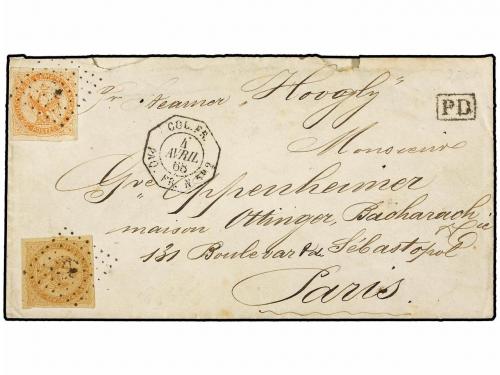 pr. steamer "Hoogly"
PD
COL. FR.
4
AVRIL
68
PAQ. FR. N. Nº 2
Monsieur
Gve Oppenheimer
maison Ottinger, Bacharach & Cie
131 Boulevart de Sébastopol
Paris.